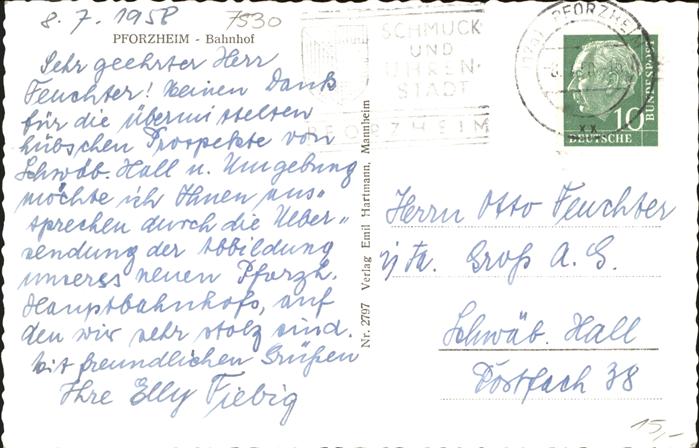 8. 7. 1958
7530
PFORZHEIM - Bahnhof
Sehr geehrter Herr
Feuchter! Meinen Dank
für die übermittelten
hübschen Prospekte von
Schwäb. Hall u. Umgebung
möchte ich Ihnen aus-
sprechen durch die Ueber-
sendung der Abbildung
unseres neuen Pforzh.
Hauptbahnhofs, auf
den wir sehr stolz sind.
Mit freundlichen Grüßen
Ihre Elly Fiebig
Nr. 2797 Verlag Emil Hartmann, Mannheim
SCHMUCK
UND
UHREN-
STADT
PFORZHEIM
PFORZHEIM
10
DEUTSCHE
BUNDESPOST
Herrn Otto Feuchter
i/Fa. Groß A. G.
Schwäb. Hall
Postfach 38
15,-